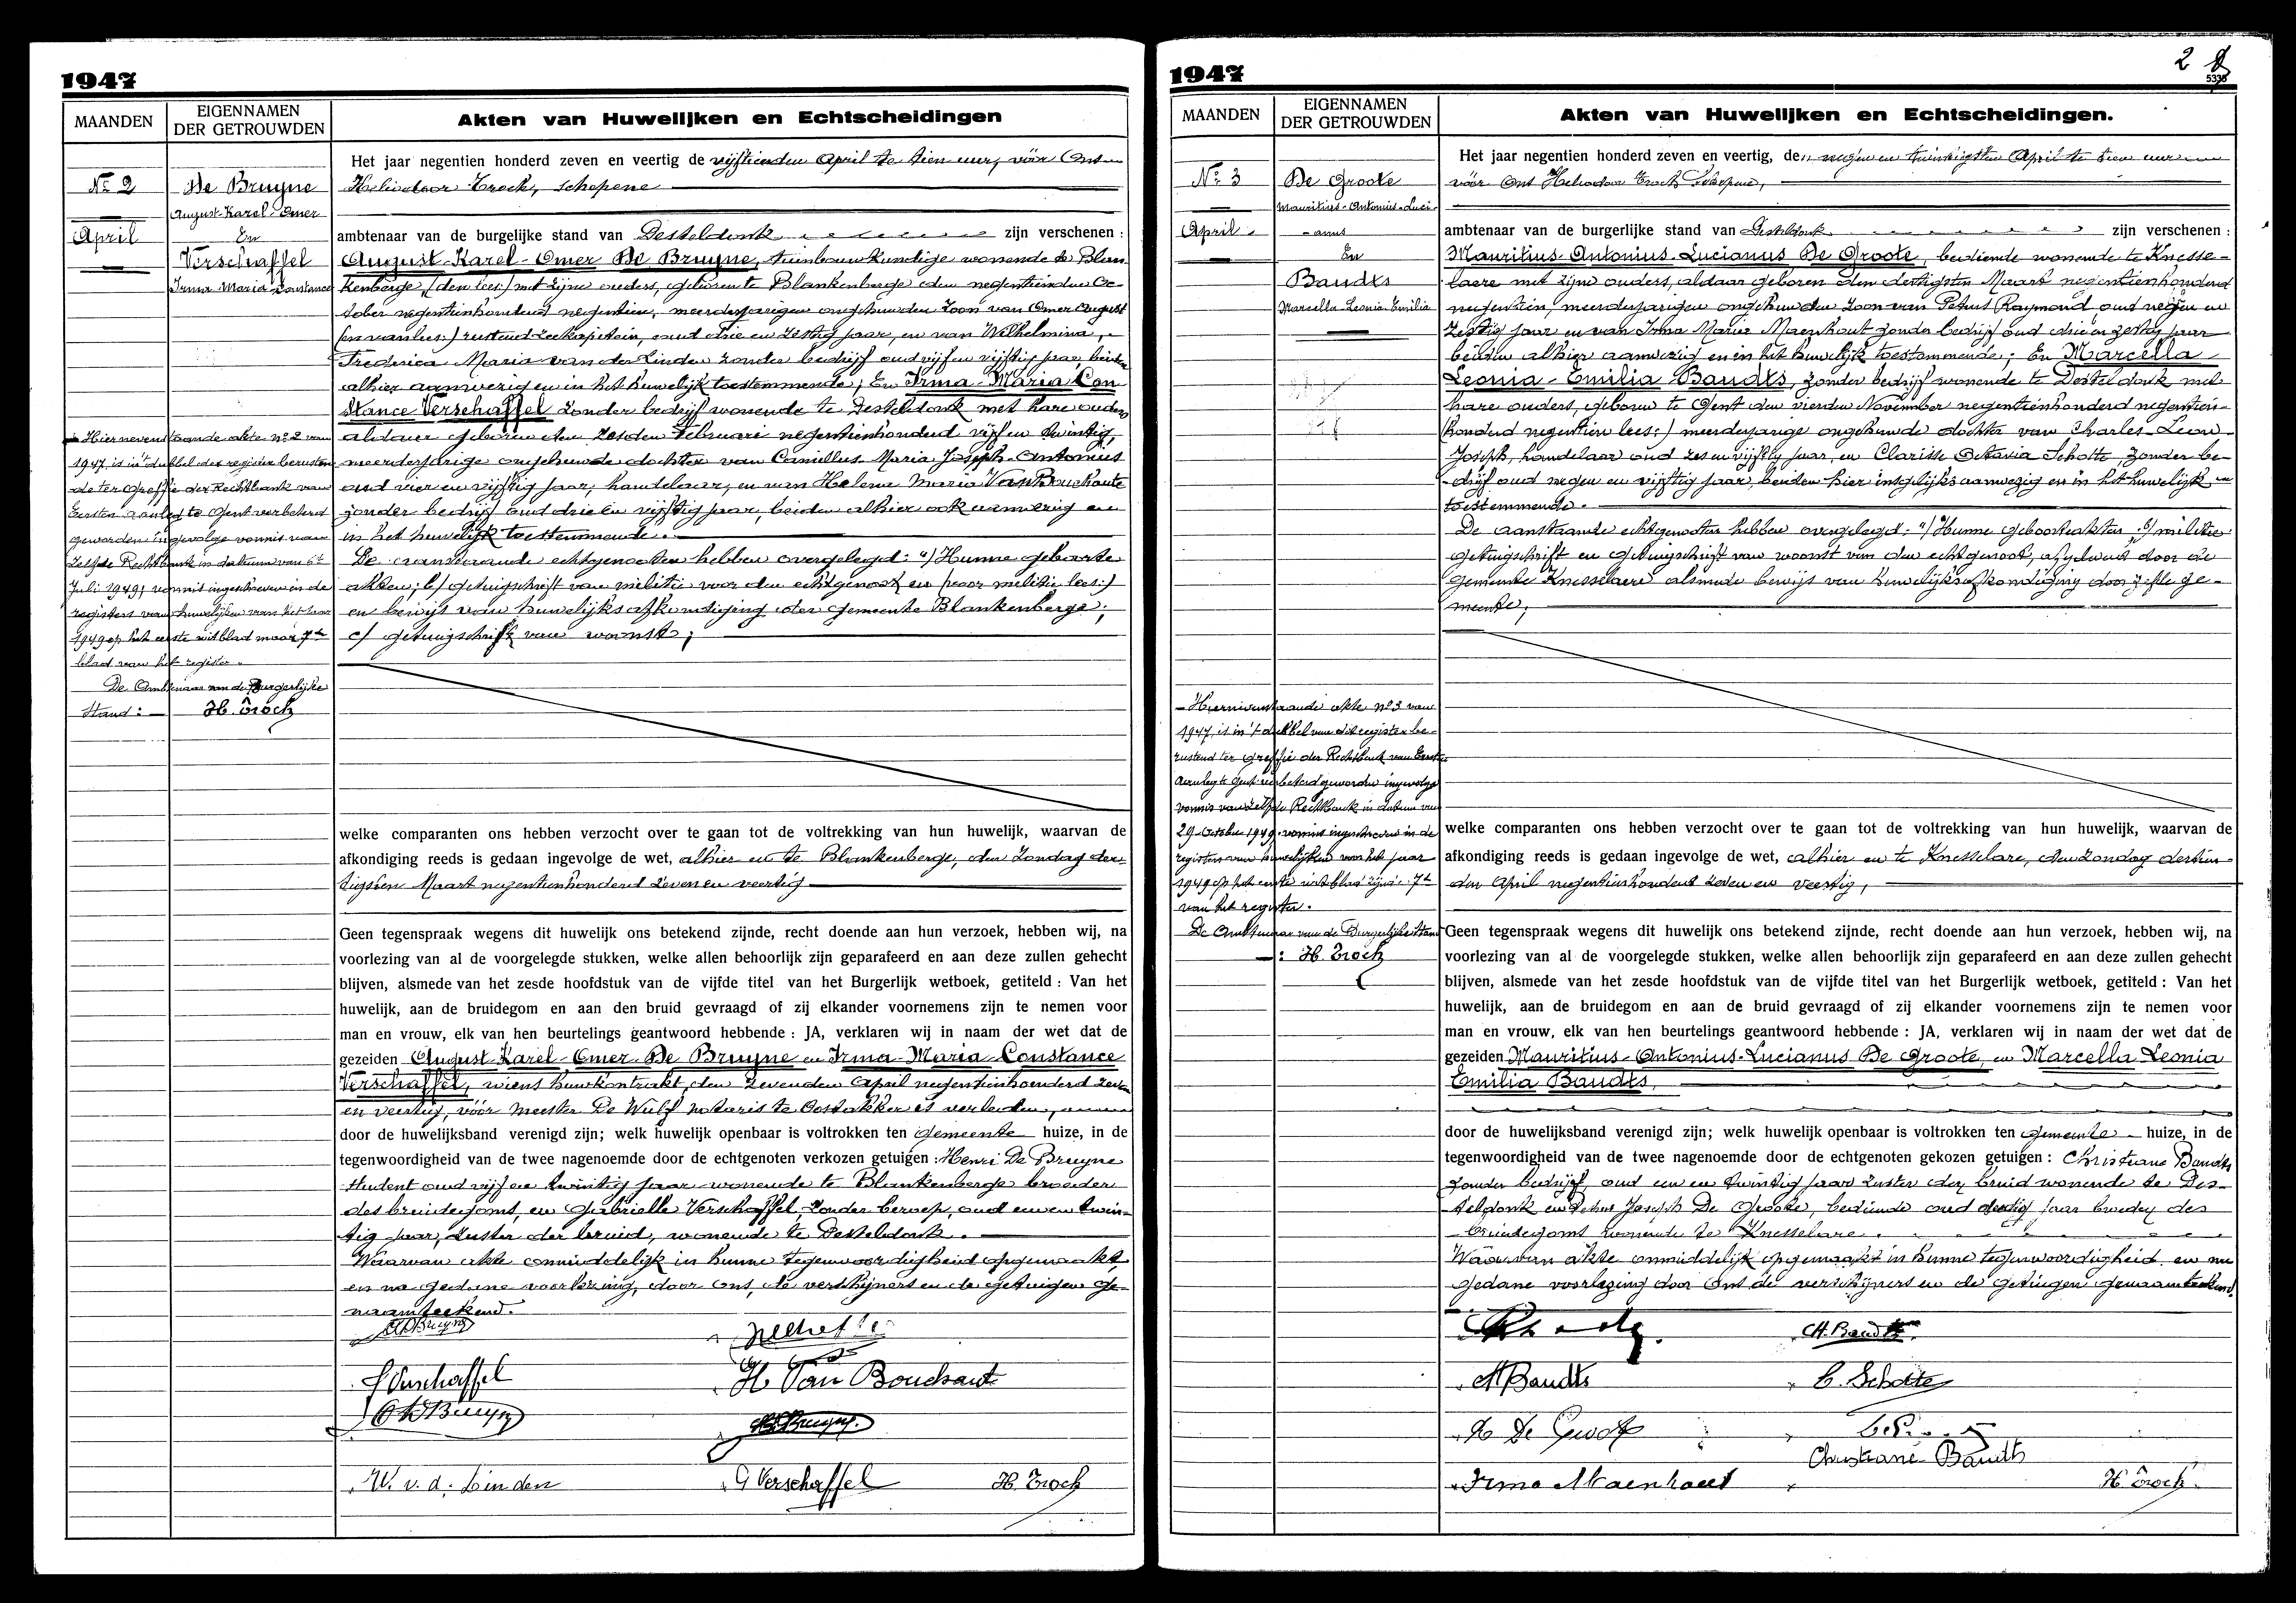 1947
MAANDEN
EIGENNAMEN
DER GETROUWDEN
Akten van Huwelijken en Echtscheidingen
No 2
April
De Bruyne
August-Karel-Omer
En
Verschaffel
Irma Maria Constance
Het jaar negentien honderd zeven en veertig de vijftienden April te tien uur, vóór Ons
Heliodoor Troch, schepene
ambtenaar van de burgelijke stand van Desteldonk zijn verschenen :
August-Karel-Omer De Bruyne, tuinbouwkundige wonende te Blan
kenberge, (den lees:) met zijne ouders, geboren te Blankenberge den negentienden Oc-
tober negentienhonderd negentien, meerderjarigen ongehuwden zoon van Omer August
(en van lees:) rustend zeekapitein, oud drie en zestig jaar, en van Wilhelmina,
Frederica Maria van der Linden zonder bedrijf oud vijf en vijftig jaar, beiden
alhier aanwezig en in het huwelijk toestemmende; En Irma-Maria Con
stance Verschaffel zonder bedrijf wonende te Desteldonk met hare ouders
aldaar geboren den zesden Februari negentienhonderd vijf en twintig,
meerderjarige ongehuwde dochter van Camillus Maria Joseph-Antonius
oud vier en vijftig jaar, handelaar, en van Helena Maria Van Bouchaute
zonder bedrijf oud drie en vijftig jaar, beiden alhier ook aanwezig en
in het huwelijk toestemmende.
De aanstaande echtgenooten hebben overgelegd: a/ Hunne geboorte
akten; b/ getuigschrift van militie voor den echtgenoot en (voor militie lees:)
en bewijs van huwelijksafkondiging der gemeente Blankenberge;
c/ getuigschrift van woonst;
Hiernevenstaande akte no 2 van
1947, is in 't dubbel des register berusten
de ter Greffie der Rechtbank van
Eersten aanleg te Gent verbeterd
geworden ingevolge vonnis van
zelfde Rechtbank in datum van 6n
Juli 1949; vonnis ingeschreven in de
registers van huwelijken van het jaar
1949 op het eerste uitblad naar 7de
blad van het register.
De Ambtenaar van de Burgerlijke
Stand : H. Troch
welke comparanten ons hebben verzocht over te gaan tot de voltrekking van hun huwelijk, waarvan de
afkondiging reeds is gedaan ingevolge de wet, alhier en te Blankenberge, den Zondag der-
tigsten Maart negentienhonderd zeven en veertig
Geen tegenspraak wegens dit huwelijk ons betekend zijnde, recht doende aan hun verzoek, hebben wij, na
voorlezing van al de voorgelegde stukken, welke allen behoorlijk zijn geparafeerd en aan deze zullen gehecht
blijven, alsmede van het zesde hoofdstuk van de vijfde titel van het Burgerlijk wetboek, getiteld : Van het
huwelijk, aan de bruidegom en aan den bruid gevraagd of zij elkander voornemens zijn te nemen voor
man en vrouw, elk van hen beurtelings geantwoord hebbende : JA, verklaren wij in naam der wet dat de
gezeiden August-Karel-Omer De Bruyne en Irma-Maria-Constance
Verschaffel, wiens huwkontrakt, den zevenden April negentienhonderd zeven
en veertig, vóór meester De Wulf notaris te Oostakker is verleden,
door de huwelijksband verenigd zijn; welk huwelijk openbaar is voltrokken ten gemeente huize, in de
tegenwoordigheid van de twee nagenoemde door de echtgenoten verkozen getuigen : Henri De Bruyne
student oud vijf en twintig jaar wonende te Blankenberge broeder
des bruidegoms, en Gabrielle Verschaffel, zonder beroep, oud een en twin-
tig jaar, zuster der bruid, wonende te Desteldonk.
Waarvan akte onmiddelijk in hunne tegenwoordigheid opgemaakt,
en na gedane voorlezing, door ons, de verschijners en de getuigen ge-
naamteekend.
I Verschaffel
H Van Bouchaut
W. v. d. Linden
G Verschaffel
H. Troch
1947
2
5335
MAANDEN
EIGENNAMEN
DER GETROUWDEN
Akten van Huwelijken en Echtscheidingen.
No 3
April
De Groote
Mauritius-Antonius-Luci-
anus
En
Baudts
Marcella Leonia Emilia
Het jaar negentien honderd zeven en veertig, den negen en twintigsten April te tien uur
vóór Ons Heliodoor Troch Schepene,
ambtenaar van de burgerlijke stand van Desteldonk zijn verschenen :
Mauritius-Antonius-Lucianus De Groote, bediende wonende te Knesse-
laere met zijne ouders, aldaar geboren den dertigsten Maart negentienhonderd
negentien, meerderjarigen ongehuwden zoon van Petrus Raymond oud negen en
zestig jaar en van Irma Maria Maenhout zonder bedrijf oud drie en zestig jaar
beiden alhier aanwezig en in het huwelijk toestemmende; En Marcella
Leonia-Emilia Baudts, zonder bedrijf wonende te Desteldonk met
hare ouders, geboren te Gent den vierden November negentienhonderd negentien-
(honderd negentien lees:) meerderjarige ongehuwde dochter van Charles-Leon
Joseph, handelaar oud zes en vijftig jaar, en Clarisse Octavia Scholte zonder be-
drijf oud negen en vijftig jaar, beiden hier insgelijks aanwezig en in het huwelijk
toestemmende.
De aanstaande echtgenooten hebben overgelegd: a/ Hunne geboorteakten; b/ militie
getuigschrift en getuigschrift van woonst van den echtgenoot, afgeleverd door de
gemeente Knesselaere alsmede bewijs van huwelijksafkondiging door zelfde ge-
meente;
Hiernevenstaande akte no 3 van
1947, is in 't dubbel van dit register be-
rustend ter Greffie der Rechtbank van Eersten
Aanleg te Gent verbeterd geworden ingevolge
vonnis van zelfde Rechtbank in datum van
29 October 1949. vonnis ingeschreven in de
registers van huwelijken voor het jaar
1949 op het eerste uitblad zijnde 7de
van het register.
De Ambtenaar van de Burgerlijke Stand
: H. Troch
welke comparanten ons hebben verzocht over te gaan tot de voltrekking van hun huwelijk, waarvan de
afkondiging reeds is gedaan ingevolge de wet, alhier en te Knesselare, den zondag dertien-
den April negentienhonderd zeven en veertig,
Geen tegenspraak wegens dit huwelijk ons betekend zijnde, recht doende aan hun verzoek, hebben wij, na
voorlezing van al de voorgelegde stukken, welke allen behoorlijk zijn geparafeerd en aan deze zullen gehecht
blijven, alsmede van het zesde hoofdstuk van de vijfde titel van het Burgerlijk wetboek, getiteld : Van het
huwelijk, aan de bruidegom en aan de bruid gevraagd of zij elkander voornemens zijn te nemen voor
man en vrouw, elk van hen beurtelings geantwoord hebbende : JA, verklaren wij in naam der wet dat de
gezeiden Mauritius-Antonius-Lucianus De Groote, en Marcella Leonia
Emilia Baudts,
door de huwelijksband verenigd zijn; welk huwelijk openbaar is voltrokken ten gemeente huize, in de
tegenwoordigheid van de twee nagenoemde door de echtgenoten gekozen getuigen : Christiane Baudts
zonder bedrijf, oud een en twintig jaar zuster der bruid wonende te Des-
teldonk en Petrus Joseph De Groote, bediende oud dertig jaar broeder des
bruidegoms wonende te Knesselare.
Waarvan akte onmiddelijk opgemaakt in hunne tegenwoordigheid en na
gedane voorlezing door Ons, de verschijners en de getuigen genaamteekend.
Ch. Baudts
M Baudts
C. Scholte
Christiane Baudts
Irma Maenhout
H Troch